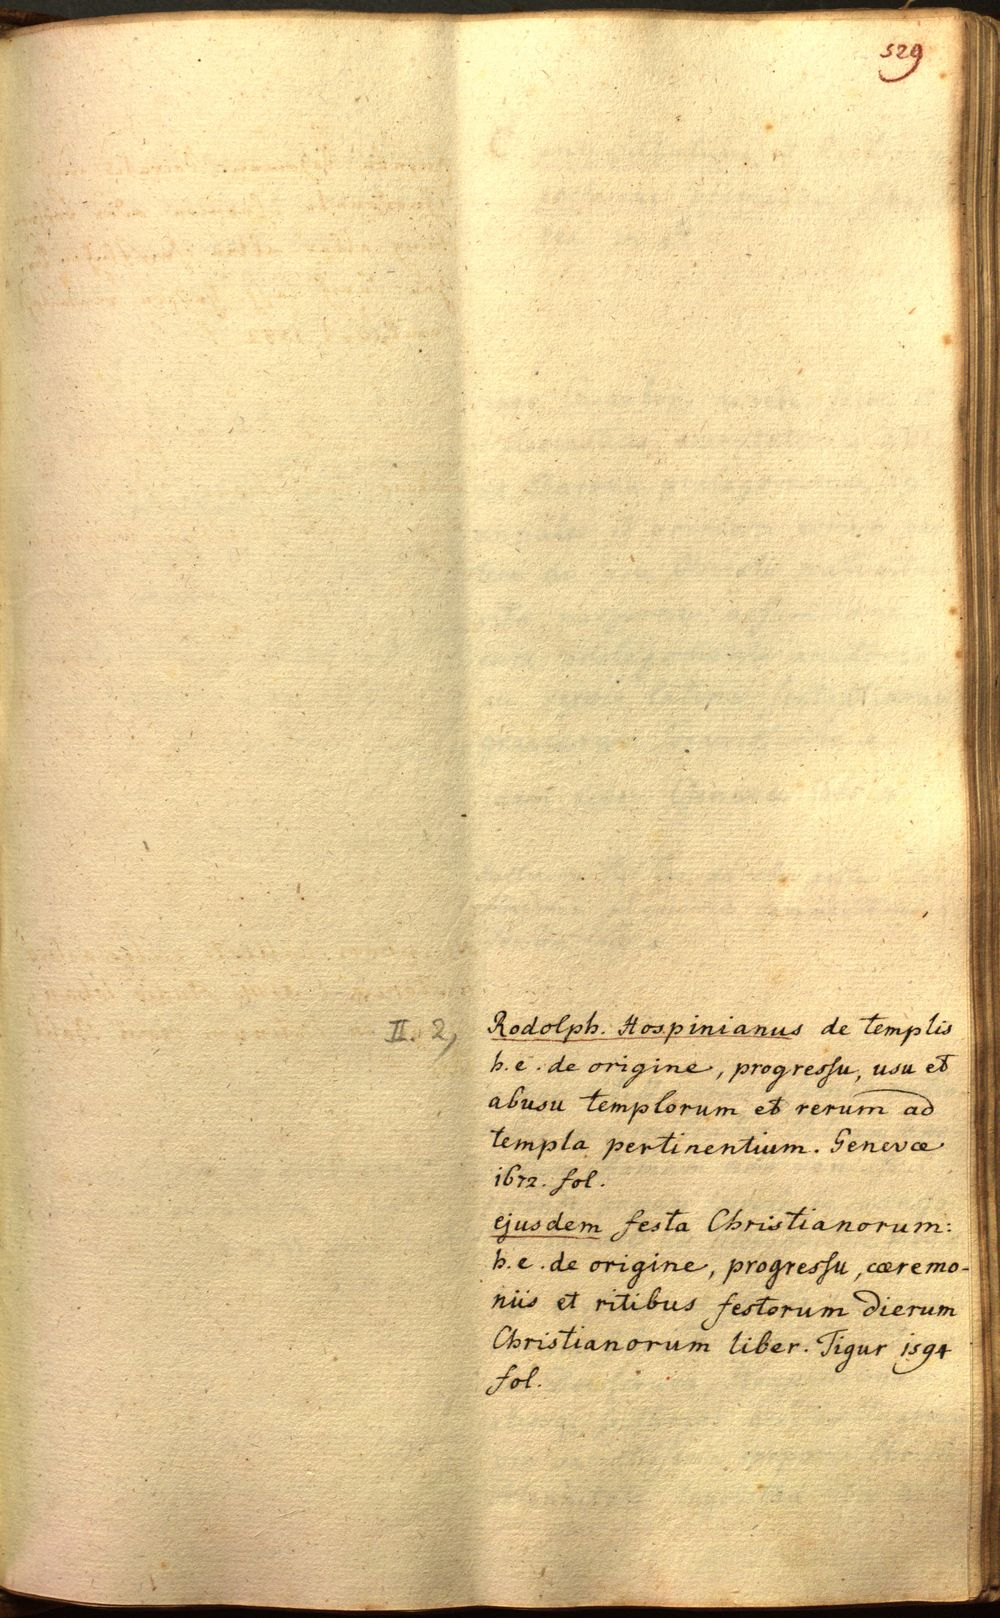 529
II. 2, Rodolph. Hospinianus de templis
h. e. de origine, progressu, usu et
abusu templorum et rerum ad
templa pertinentium. Genevæ
1672. fol.
ejusdem festa Christianorum:
h. e. de origine, progressu, cæremo-
niis et ritibus festorum dierum
Christianorum liber. Tigur 1594
fol.